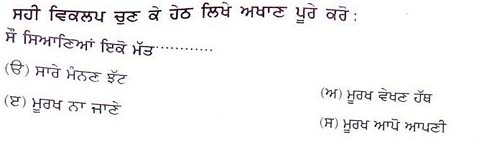 ਸਹੀ ਵਿਕਲਪ ਚੁਣ ਕੇ ਹੇਠ ਲਿਖੇ ਅਖਾਣ ਪੂਰੇ ਕਰੋ :
ਸੌ ਸਿਆਣਿਆਂ ਇਕੋ ਮੱਤ............
(ੳ) ਸਾਰੇ ਮੰਨਣ ਝੱਟ
(ਅ) ਮੂਰਖ ਵੇਖਣ ਹੱਥ
(ੲ) ਮੂਰਖ ਨਾ ਜਾਣੇ
(ਸ) ਮੂਰਖ ਆਪੋ ਆਪਣੀ